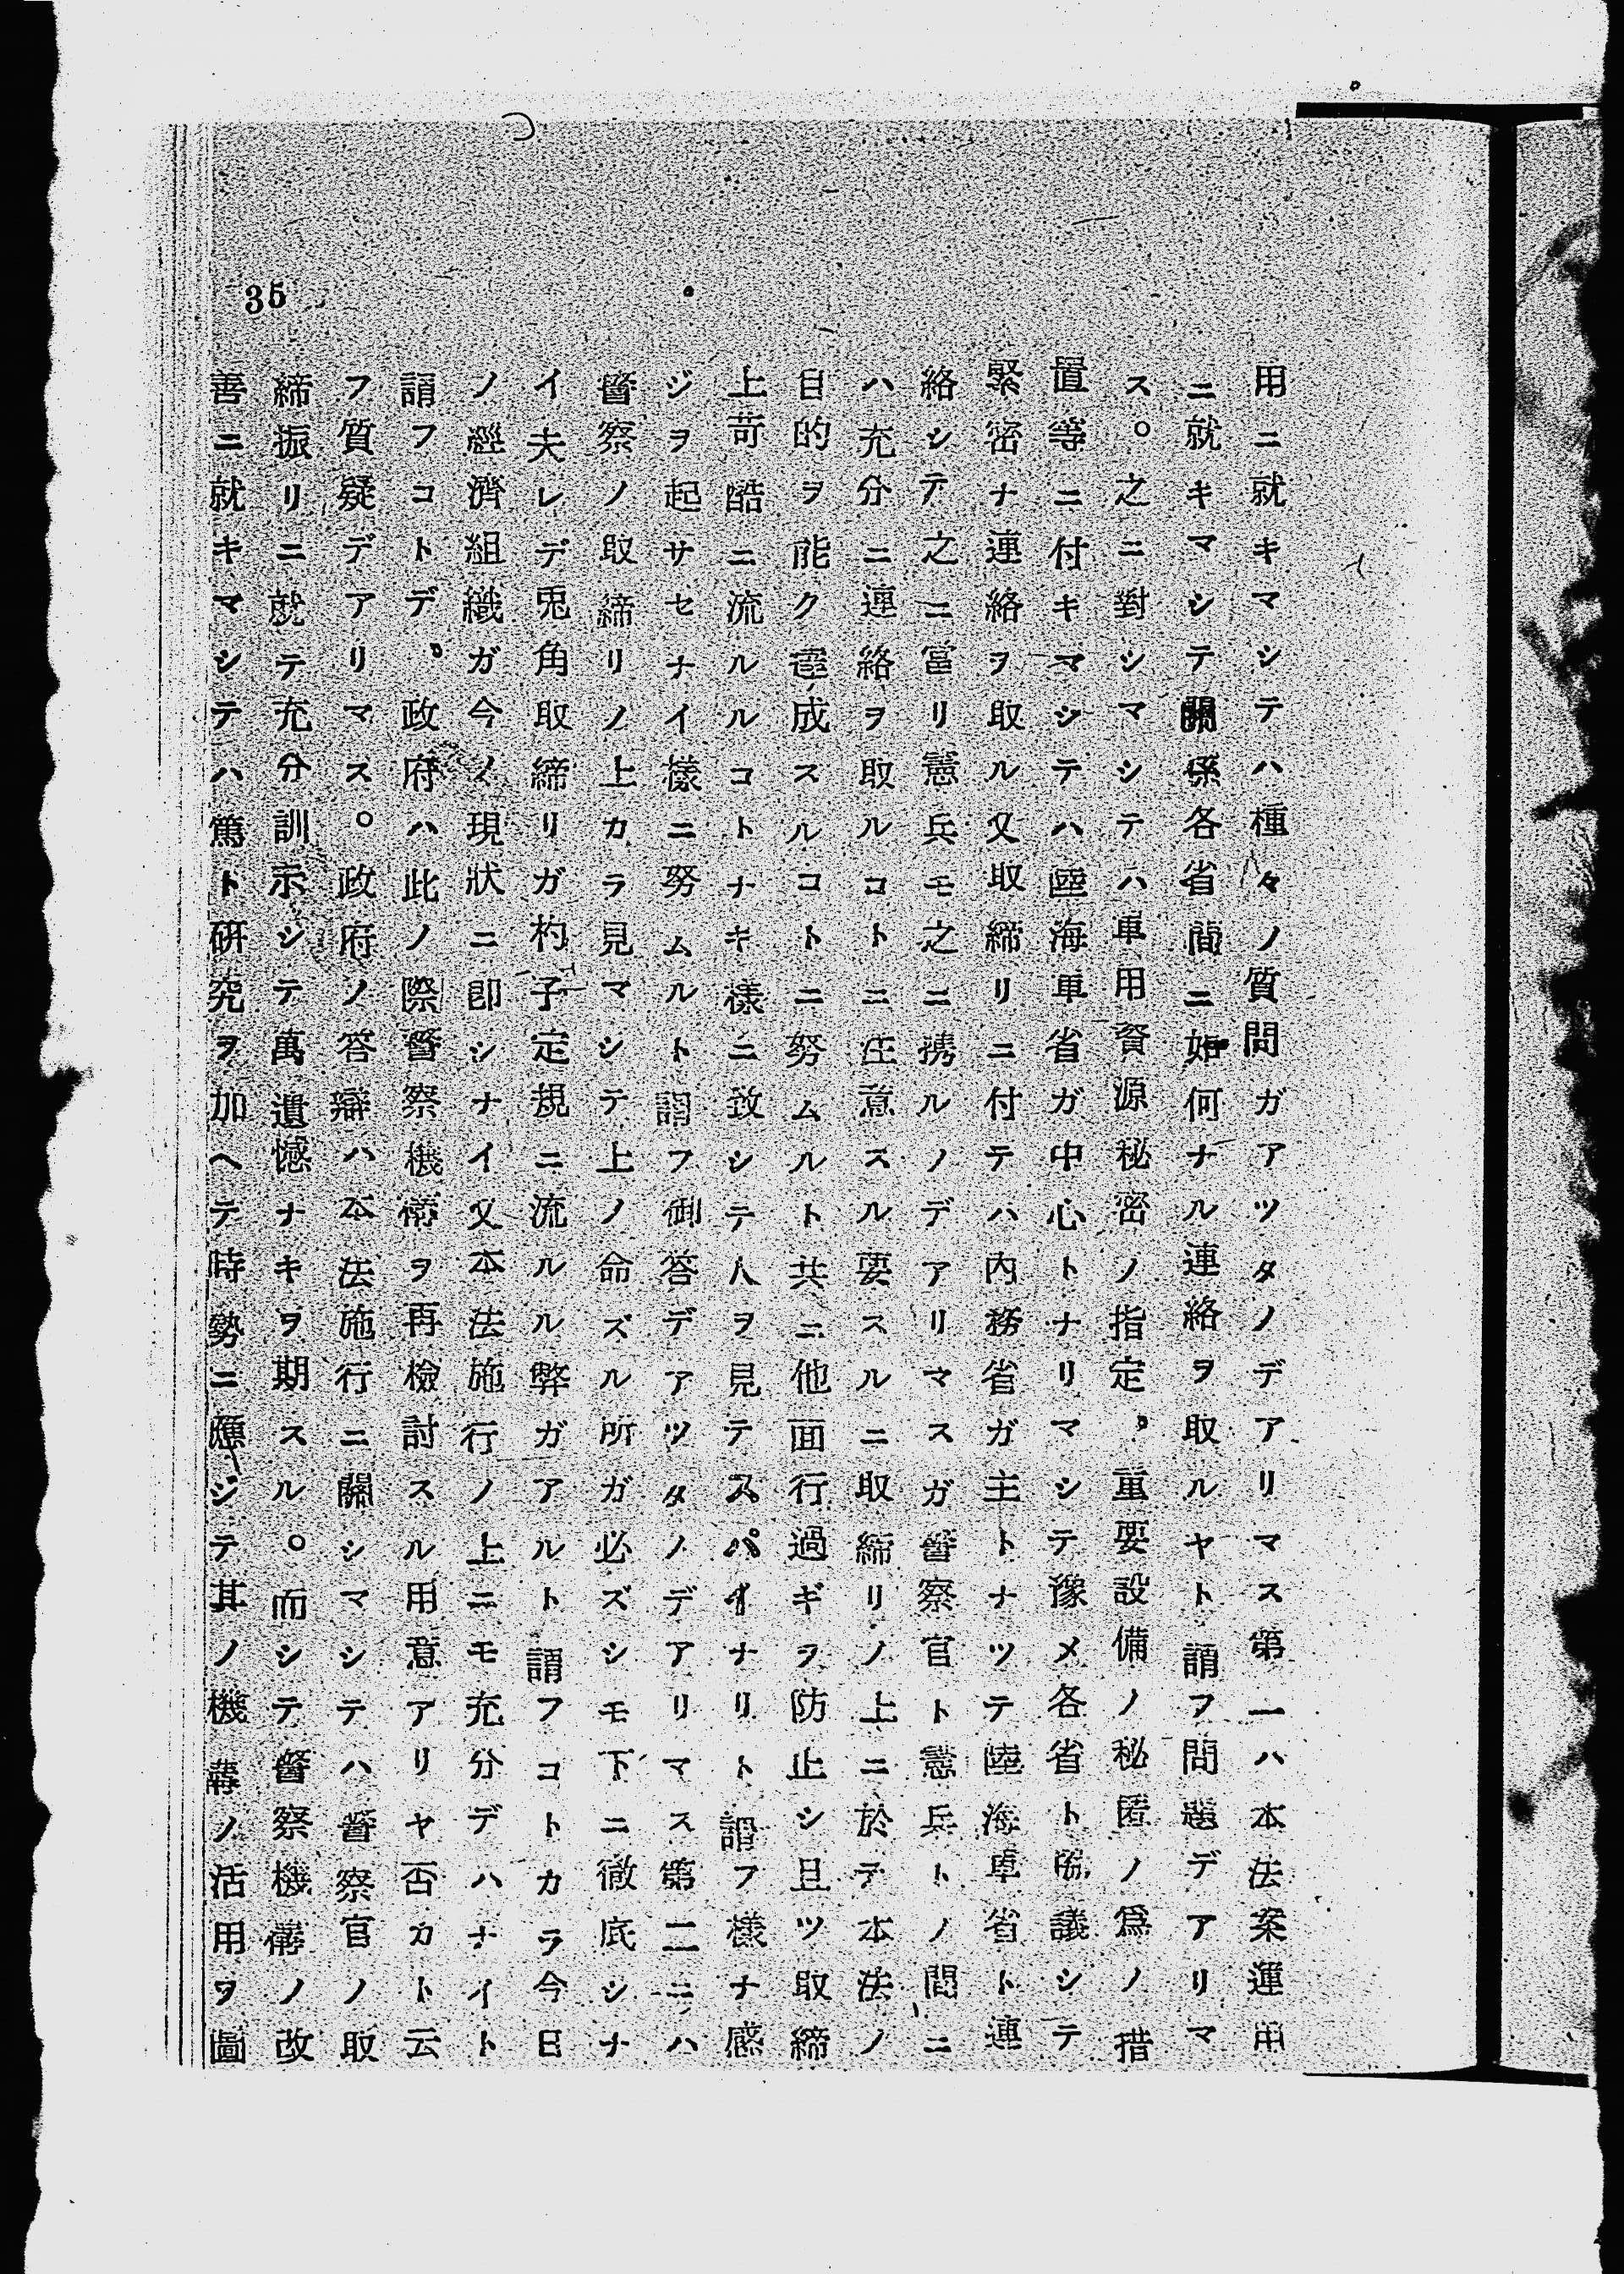 用ニ就キマシテハ種々ノ質問ガアツタノデアリマス第一ハ本法案運用
ニ就キマシテ關係各省間ニ如何ナル連絡ヲ取ルヤト謂フ問題デアリマ
ス。之ニ對シマシテハ軍用資源秘密ノ指定,重要設備ノ秘匿ノ爲ノ措
置等ニ付キマシテハ陸海軍省ガ中心トナリマシテ豫メ各省ト協議シテ
緊密ナ連絡ヲ取ル又取締リニ付テハ內務省ガ主トナツテ陸海軍省ト連
絡シテ之ニ當リ憲兵モ之ニ携ルノデアリマスガ警察官ト憲兵トノ間ニ
ハ充分ニ連絡ヲ取ルコトニ注意スル要スルニ取締リノ上ニ於テ本法ノ
目的ヲ能ク達成スルコトニ努ムルト共ニ他面行過ギヲ防止シ且ツ取締
上苛酷ニ流ルルコトナキ樣ニ致シテ人ヲ見テスパイナリト謂フ樣ナ感
ジヲ起サセナイ樣ニ努ムルト謂フ御答デアツタノデアリマス第二ニハ
警察ノ取締リノ上カラ見マシテ上ノ命ズル所ガ必ズシモ下ニ徹底シナ
イ夫レデ兎角取締リガ杓子定規ニ流ルル弊ガアルト謂フコトカラ今日
ノ經濟組織ガ今ノ現狀ニ卽シナイ又本法施行ノ上ニモ充分デハナイト
謂フコトデ,政府ハ此ノ際警察機構ヲ再檢討スル用意アリヤ否カト云
フ質疑デアリマス。政府ノ答辯ハ本法施行ニ關シマシテハ警察官ノ取
締振リニ就テ充分訓示シテ萬遺憾ナキヲ期スル。而シテ警察機構ノ改
善ニ就キマシテハ篤ト硏究ヲ加ヘテ時勢ニ應ジテ其ノ機構ノ活用ヲ圖
35